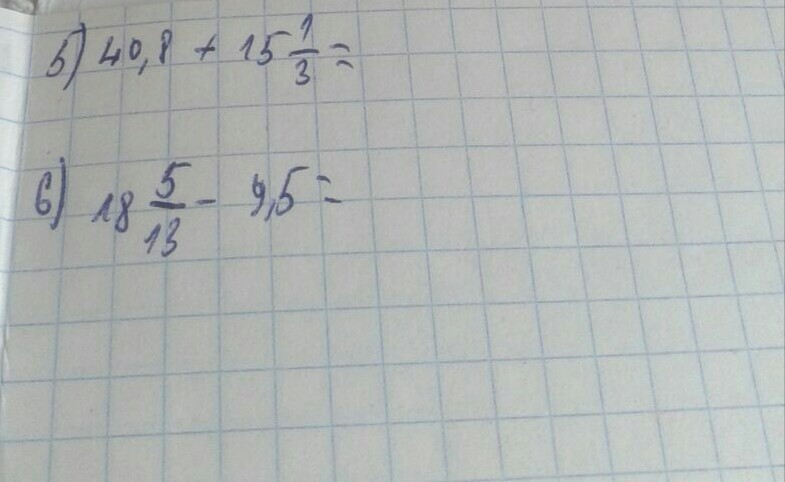 5) 40,8 + 15 1/3 =
6) 18 5/13 - 9,5 =